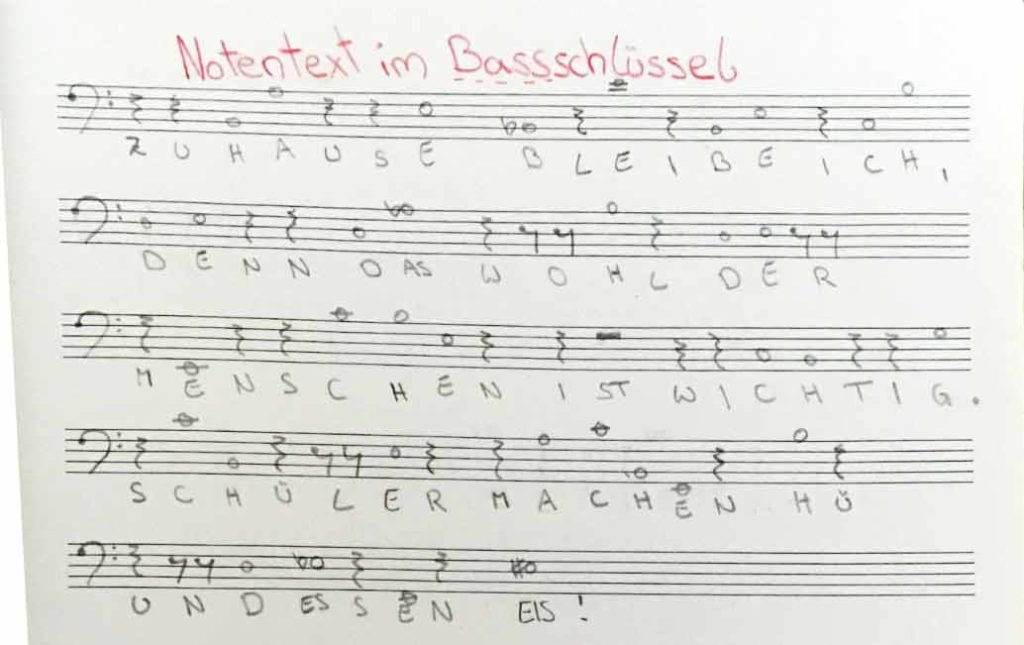 Notentext im Bassschlüssel
ZUHAUSE BLEIBE ICH,
DENN DAS WOHL DER
MENSCHEN IST WICHTIG.
SCHÜLER MACHEN HÜ
UND ESSEN EIS!